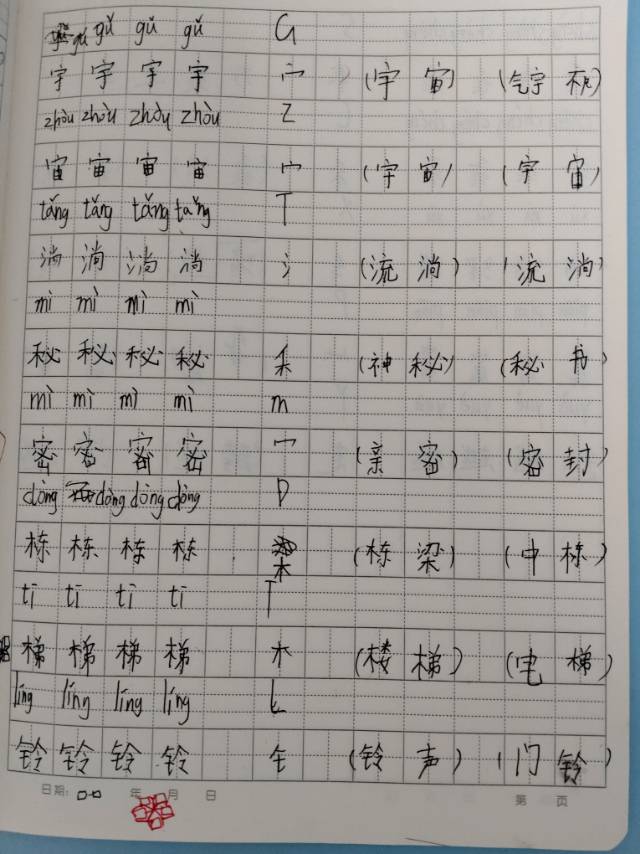 gǔ gǔ gǔ gǔ G
宇 宇 宇 宇 宀 (宇 宙) (气宇 不凡)
zhòu zhòu zhòu zhòu Z
宙 宙 宙 宙 宀 (宇 宙) (宇 宙)
tǎng tǎng tǎng tǎng T
淌 淌 淌 淌 氵 (流 淌) (流 淌)
mì mì mì mì
秘 秘 秘 秘 禾 (神 秘) (秘 书)
mì mì mì mì m
密 密 密 密 宀 (亲 密) (密 封)
dòng dòng dòng dòng D
栋 栋 栋 栋 木 (栋 梁) (中 栋)
tī tī tī tī T
梯 梯 梯 梯 木 (楼 梯) (电 梯)
líng líng líng líng L
铃 铃 铃 铃 钅 (铃 声) (门 铃)
日期: 年 月 日 第 页